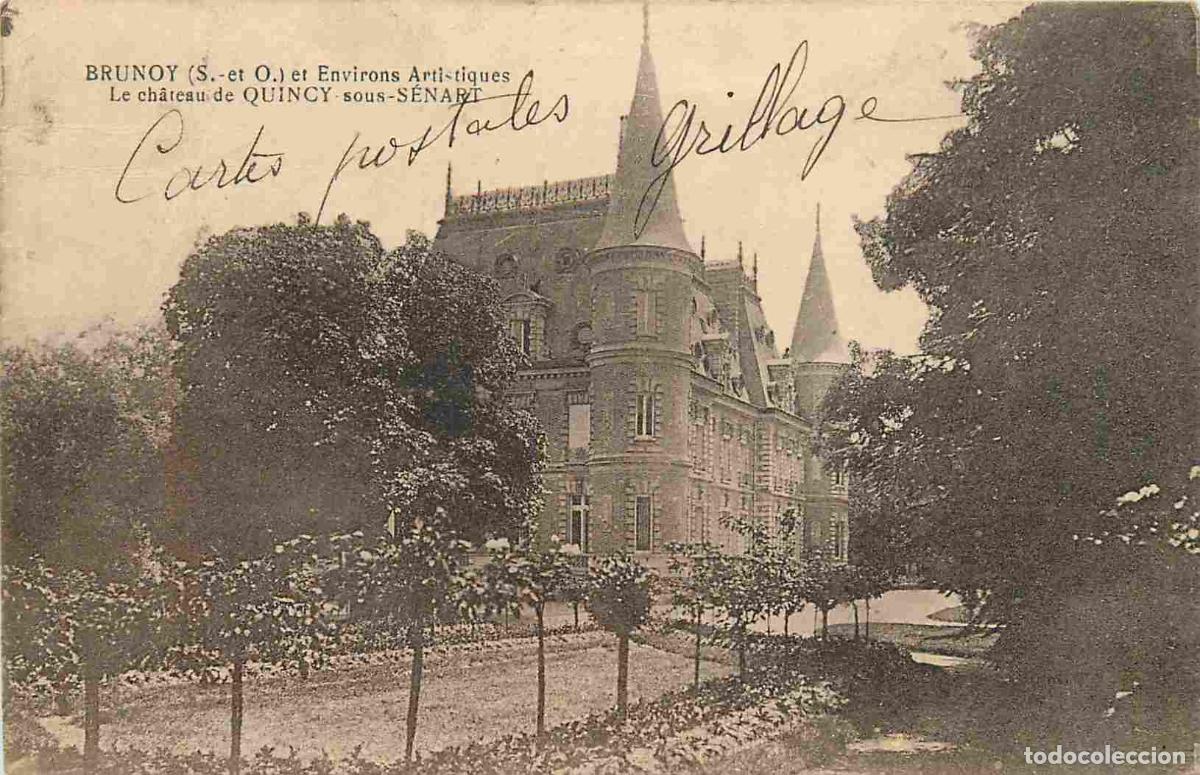 BRUNOY (S.-et O.) et Environs Artistiques
Le château de QUINCY-sous-SÉNART
Cartes postales Grillage
todocoleccion